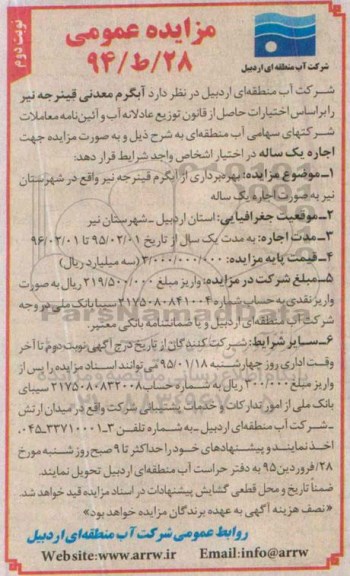 نوبت دوم
مزایده عمومی
۹۴/ط/۲۸
شرکت آب منطقه ای اردبیل
شرکت آب منطقه‌ای اردبیل در نظر دارد آبگرم معدنی قینرجه نیر
را براساس اختیارات حاصل از قانون توزیع عادلانه آب و آئین‌نامه معاملات
شرکتهای سهامی آب منطقه‌ای به شرح ذیل و به صورت مزایده جهت
اجاره یک ساله در اختیار اشخاص واجد شرایط قرار دهد:
۱ـ موضوع مزایده: بهره‌برداری از آبگرم قینرجه نیر واقع در شهرستان
نیر به صورت اجاره یک ساله
۲ـ موقعیت جغرافیایی: استان اردبیل ـ شهرستان نیر
۳ـ مدت اجاره: به مدت یک سال از تاریخ ۹۵/۰۲/۰۱ تا ۹۶/۰۲/۰۱
۴ـ قیمت پایه مزایده: ۳/۰۰۰/۰۰۰/۰۰۰ (سه میلیارد ریال)
۵ـ مبلغ شرکت در مزایده: واریز مبلغ ۲۱۹/۵۰۰/۰۰۰ ریال به صورت
واریز نقدی به حساب شماره ۲۱۷۵۰۸۰۸۴۱۰۰۴ سیبا بانک ملی در وجه
شرکت آب منطقه‌ای اردبیل و یا ضمانتنامه بانکی معتبر.
۶ـ سایر شرایط: شرکت کنندگان از تاریخ درج آگهی نوبت دوم تا آخر
وقت اداری روز چهارشنبه ۹۵/۰۱/۱۸ می‌توانند اسناد مزایده را پس از
واریز مبلغ ۳۰۰/۰۰۰ ریال به شماره حساب ۲۱۷۵۰۸۰۸۳۲۰۰۸ سیبای
بانک ملی از امور تدارکات و خدمات پشتیبانی شرکت واقع در میدان ارتش
ـ شرکت آب منطقه‌ای اردبیل ـ به شماره تلفن ۳ـ۳۳۷۱۰۰۰۱ـ۰۴۵
اخذ نمایند و پیشنهادهای خود را حداکثر تا ۹ صبح روز شنبه مورخ
۲۸/فروردین ۹۵ به دفتر حراست آب منطقه‌ای اردبیل تحویل نمایند.
ضمناً تاریخ و محل قطعی گشایش پیشنهادات در اسناد مزایده قید خواهد شد.
«نصف هزینه آگهی به عهده برندگان مزایده خواهد بود»
روابط عمومی شرکت آب منطقه‌ای اردبیل
Website:www.arrw.ir Email:info@arrw
ParsNamadData